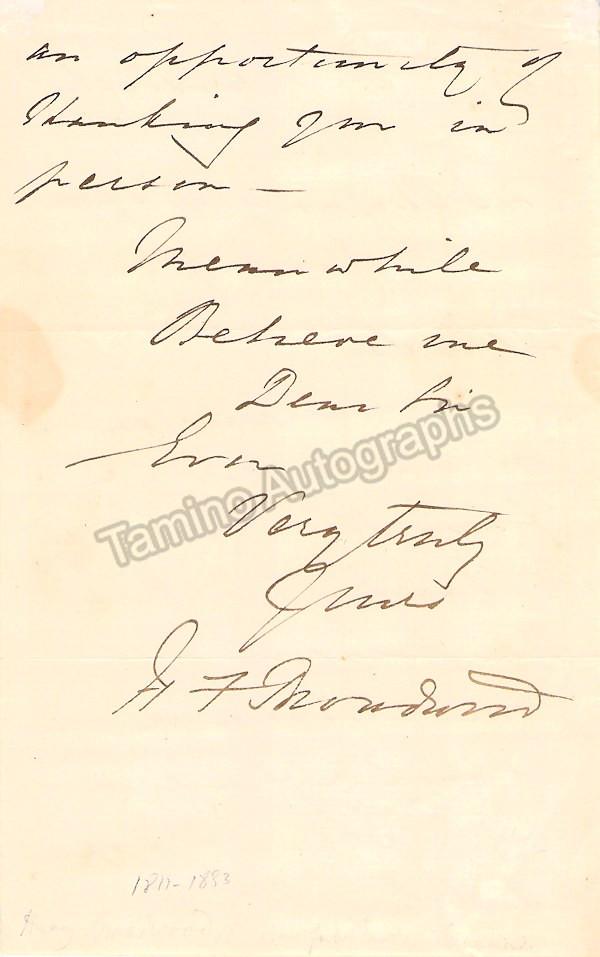 an opportunity of
thanking you in
person —
Meanwhile
Believe me
Dear Sir
Ever
Very truly
Yours
H F Broadwood
Tamino Autographs
1811-1893
Broadwood